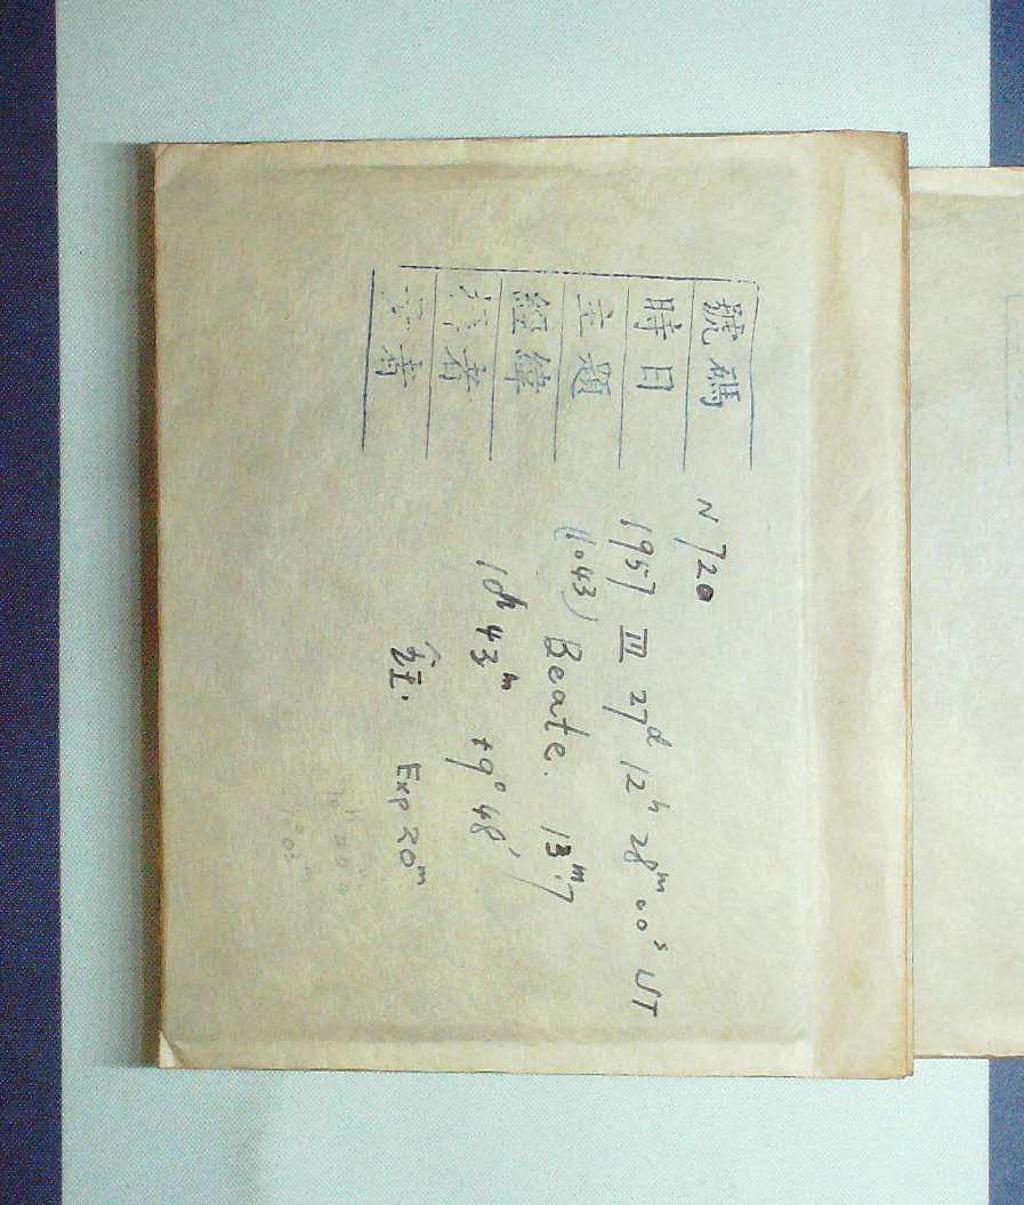 號碼 N 720
時日 1957 III 27d 12h 28m 00s UT
主題 (1043) Beate. 13m.7
經緯 10h 43m +9° 48'
者
者 Exp 20m